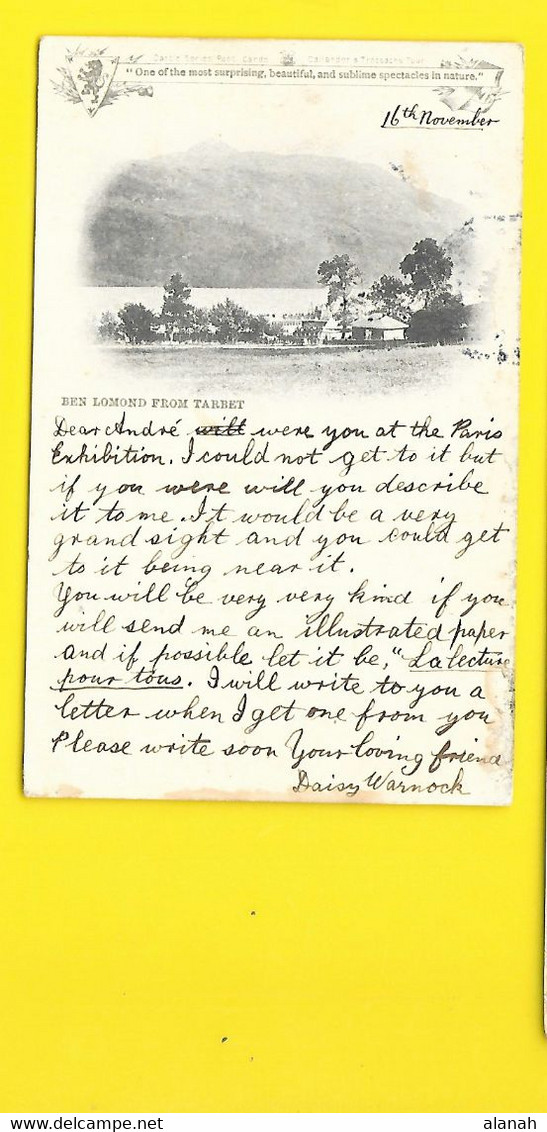 "One of the most surprising, beautiful, and sublime spectacles in nature."
16th November
BEN LOMOND FROM TARBET
Dear André will were you at the Paris
Exhibition. I could not get to it but
if you were will you describe
it to me. It would be a very
grand sight and you could get
to it being near it.
You will be very very kind if you
will send me an illustrated paper
and if possible let it be, "La lecture
pour tous. I will write to you a
letter when I get one from you
Please write soon Your loving friend
Daisy Warnock
alanah